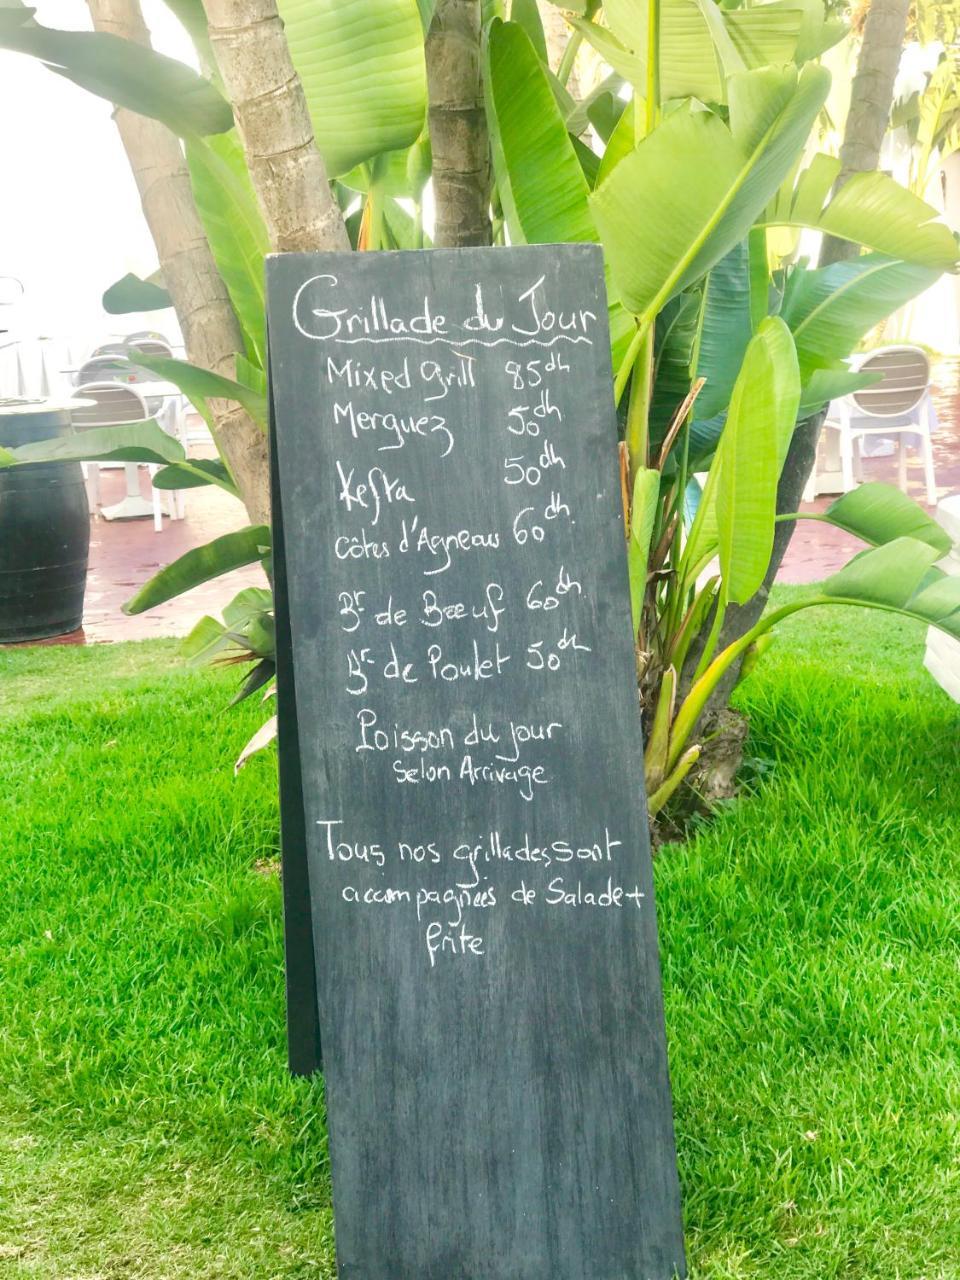 Grillade du Jour
Mixed Grill 85dh
Merguez 50dh
Kefta 50dh
Côtes d'Agneau 60dh
Br de Boeuf 60dh
Br de Poulet 50dh
Poisson du jour
Selon Arrivage
Tous nos grillades sont
accompagnées de Salade+
frite